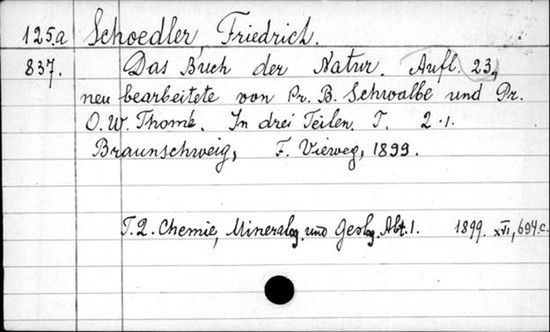 125.a Schoedler, Friedrich.
837. Das Buch der Natur. Aufl. 23,
neu bearbeitete von Pr. B. Schwalbe und Pr.
O. W. Thomé. In drei Teilen. T. 2.1.
Braunschweig, F. Vieweg, 1899.
T. 2. Chemie, Mineralog. und Geolog. Abt. 1. 1899. XVI, 694 c.